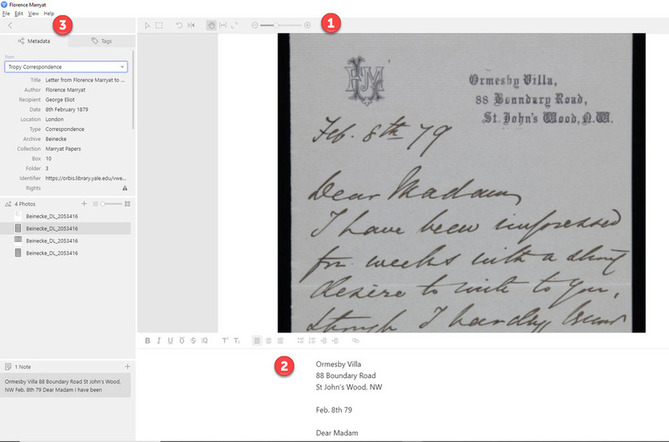 Florence Marryat
File Edit View Help
3
1
Metadata
Tags
Tropy Correspondence
Title Letter from Florence Marryat to ...
Author Florence Marryat
Recipient George Eliot
Date 8th February 1879
Location London
Type Correspondence
Archive Beinecke
Collection Marryat Papers
Box 10
Folder 3
Identifier https://orbis.library.yale.edu/vwe...
Rights
4 Photos
Beinecke_DL_2053416
Beinecke_DL_2053416
Beinecke_DL_2053416
Beinecke_DL_2053416
1 Note
Ormesby Villa 88 Boundary Road St John's Wood,
NW Feb. 8th 79 Dear Madam I have been
FM
Ormesby Villa,
88 Boundary Road,
St. John's Wood, N.W.
Feb. 8th 79
Dear Madam,
I have been impressed
for weeks with a strong
desire to write to you,
though I hardly know
B I U O S Q
2
Ormesby Villa
88 Boundary Road
St John's Wood, NW
Feb. 8th 79
Dear Madam